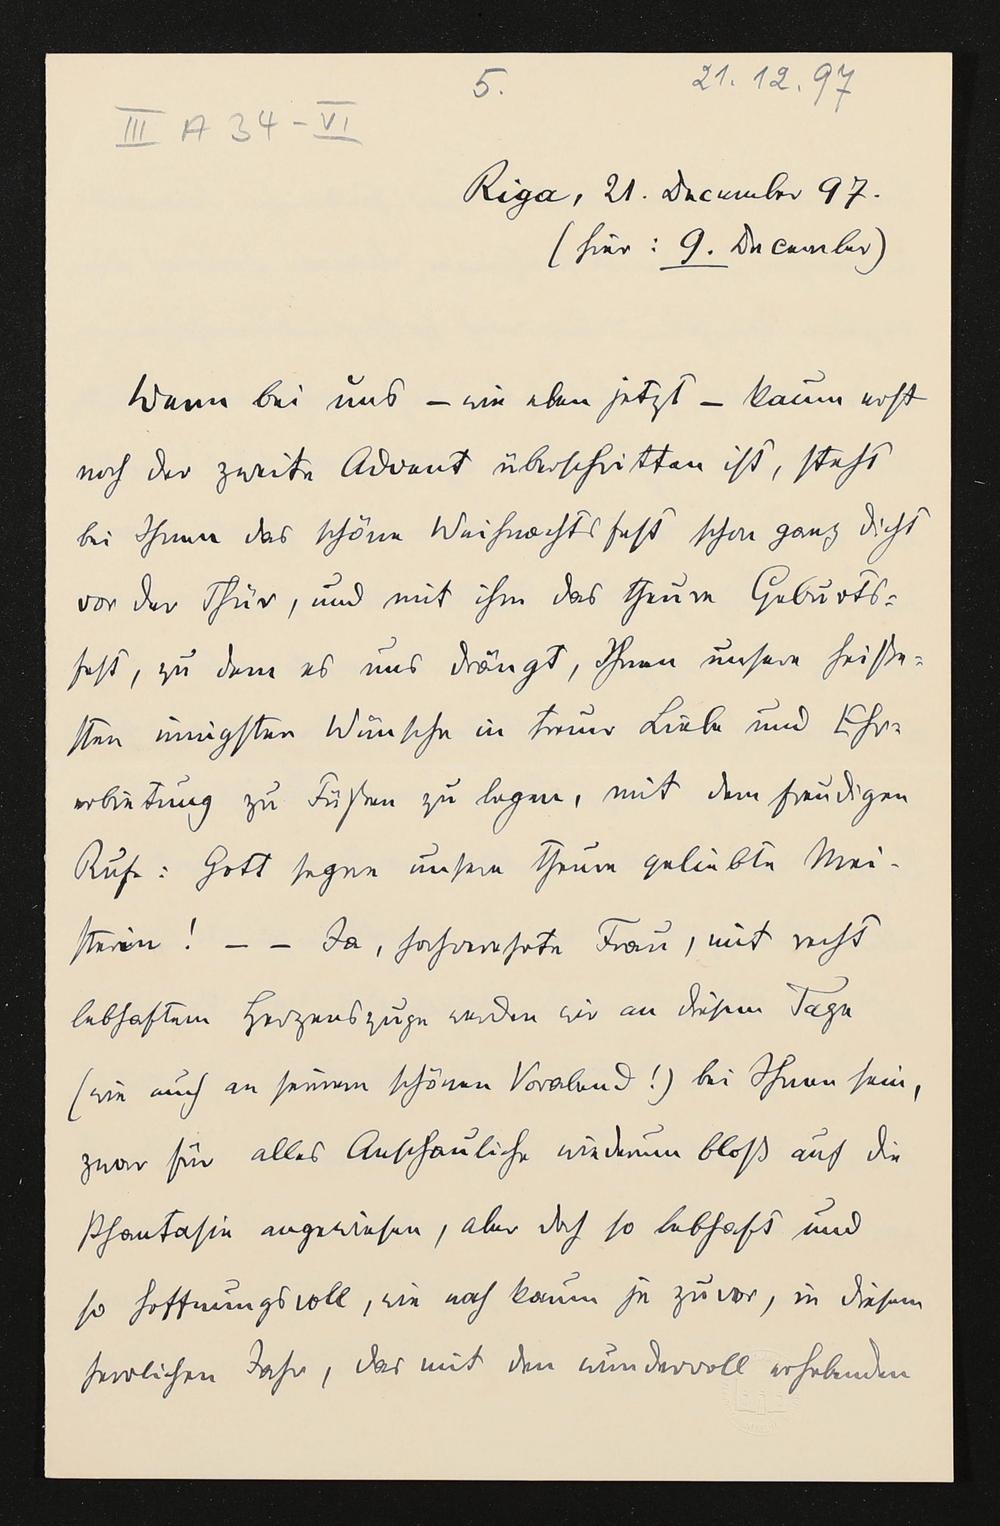 5.
21.12.97
III A 34-VI
Riga, 21. December 97.
(hier: 9. December)
Wenn bei uns – wie eben jetzt – kaum erst
noch der zweite Advent überschritten ist, steht
bei Ihnen das schöne Weihnachtsfest schon ganz dicht
vor der Thür, und mit ihm das theure Geburts=
fest, zu dem es uns drängt, Ihnen unsere heiße=
sten innigsten Wünsche in treuer Liebe und Ehr=
erbietung zu Füßen zu legen, mit dem freudigen
Rufe: Gott segne unsere theure geliebte Mei-
sterin! – – Ja, hochverehrte Frau, mit recht
lebhaftem Herzenszuge werden wir an diesem Tage
(wie auch an seinem schönen Vorabend!) bei Ihnen sein,
zwar für alles Anschauliche wiederum bloß auf die
Phantasie angewiesen, aber doch so lebhaft und
so hoffnungsvoll, wie noch kaum je zuvor, in diesem
herrlichen Jahr, das mit den wundervoll erhebenden